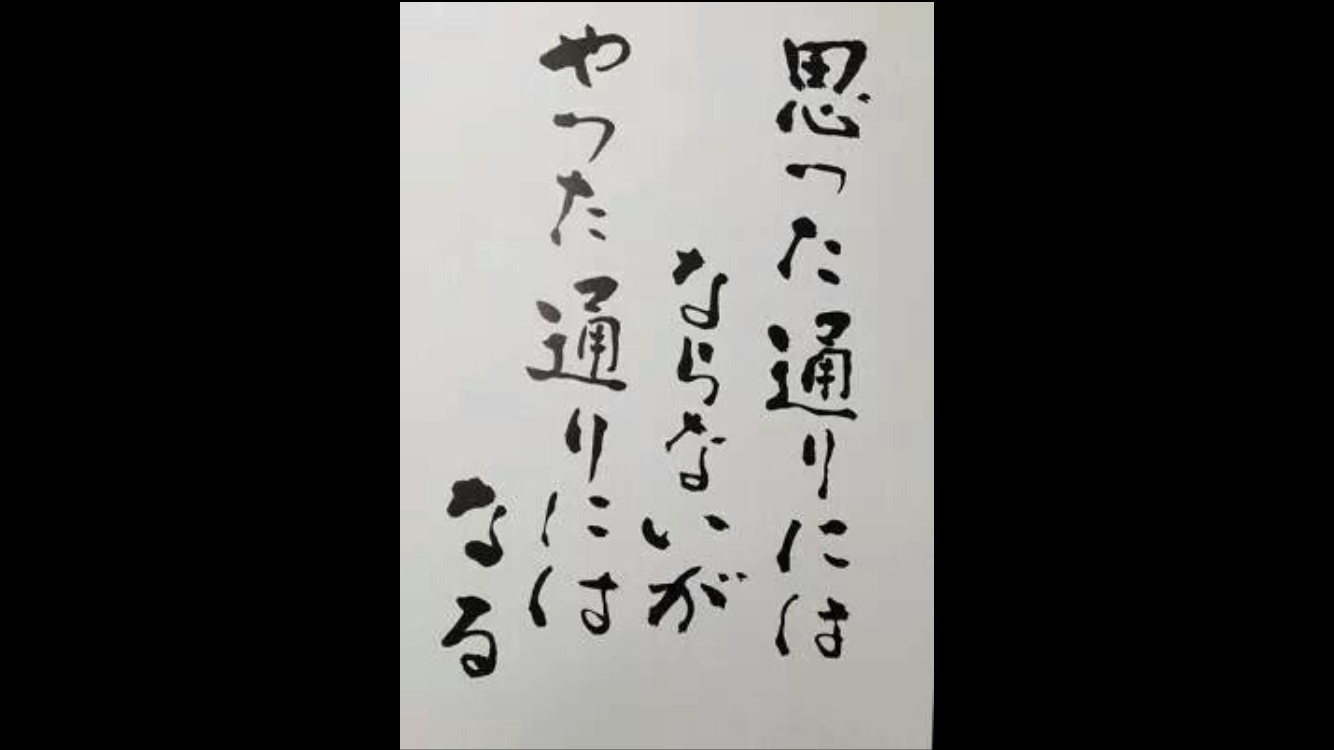 思った通りには
ならないが
やった通りには
なる